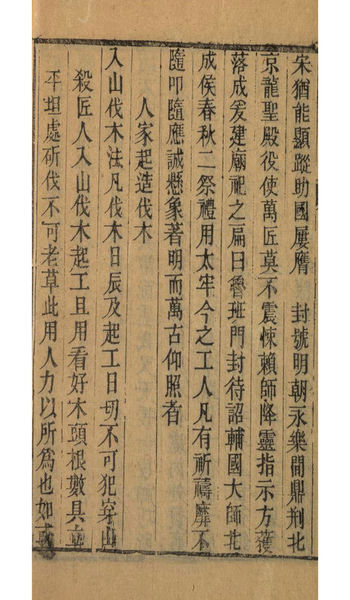 宋猶能顯蹤助國屢膺　封號明朝永樂間鼎剏北
京龍聖殿役使萬匠莫不震悚賴師降靈指示方獲
落成爰建廟祀之扁曰魯班門封待詔輔國大師北
成侯春秋二祭禮用太牢今之工人凡有祈禱靡不
隨叩隨應誠懸象著明而萬古仰照者
人家起造伐木
入山伐木法凡伐木日辰及起工日切不可犯穿山
殺匠人入山伐木起工且用看好木頭根數具立
平坦處斫伐不可老草此用人力以所爲也如或